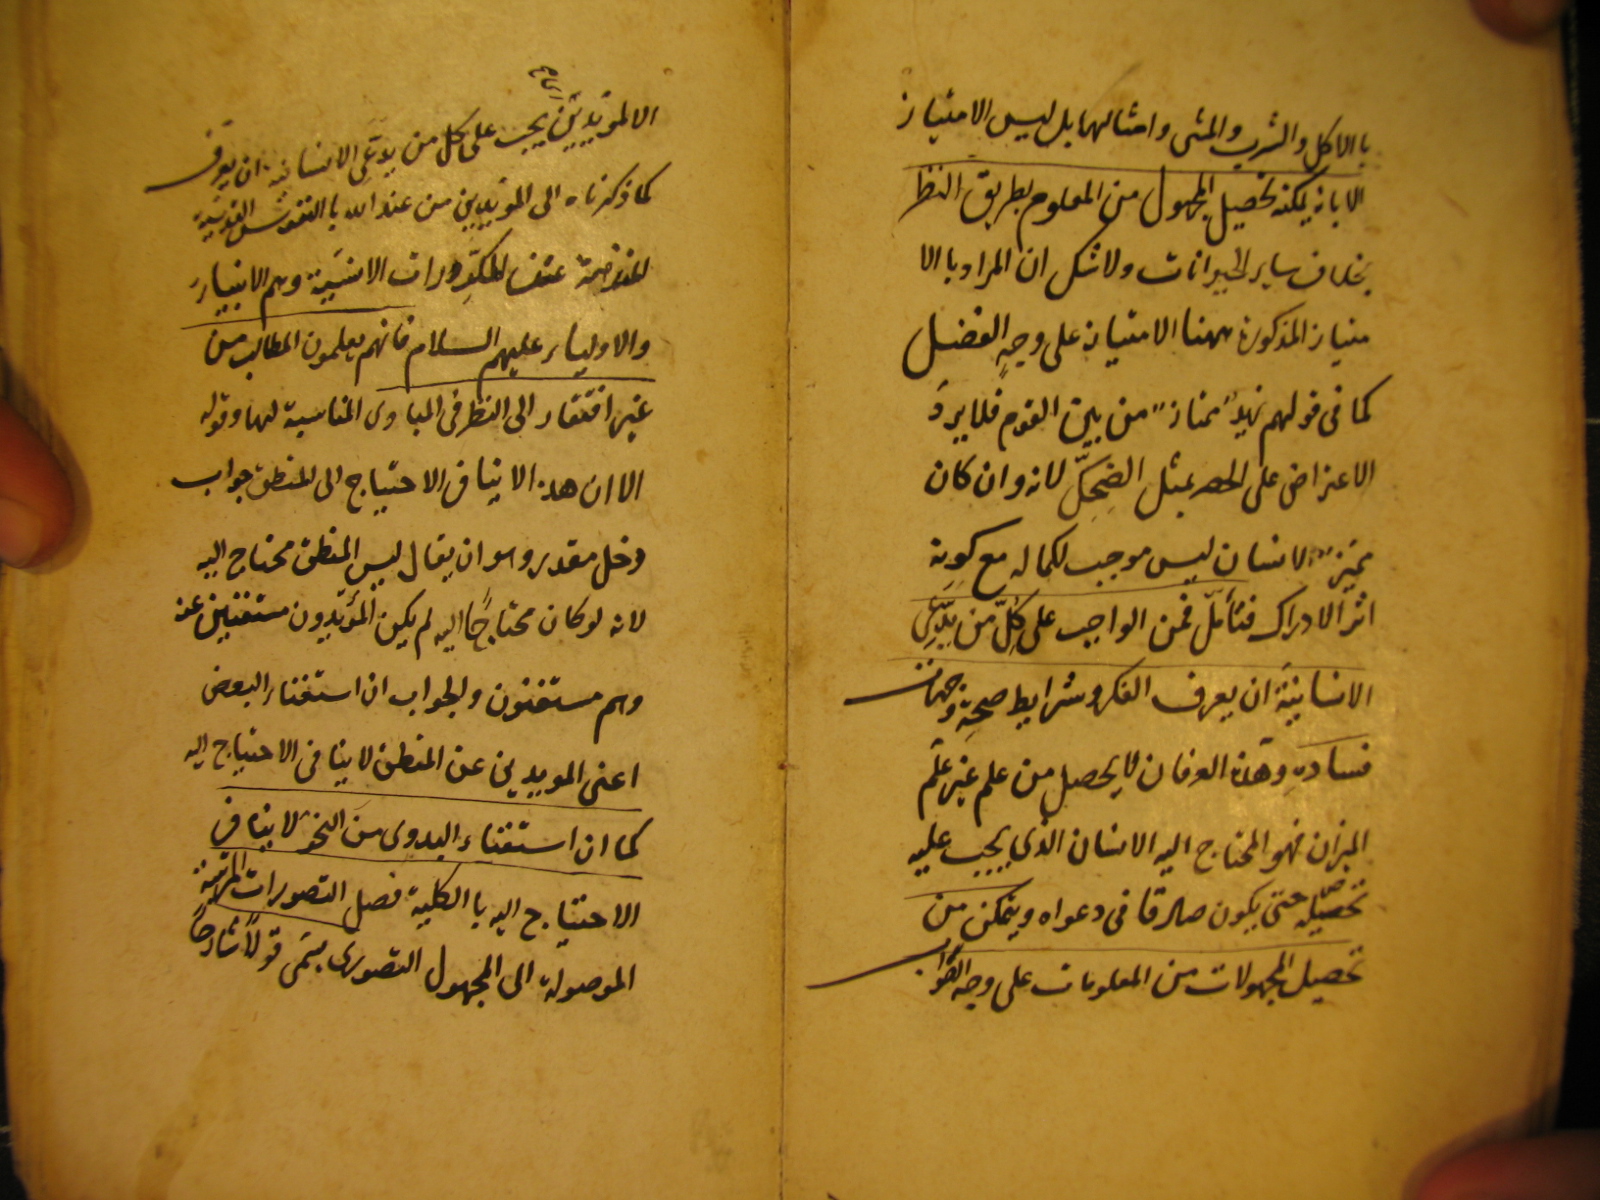 باالاكل والشرب والمشى وامثالهما بل ليس الامتياز
الا بانه يمكنه تحصيل المجهول من المعلوم بطريق النظر
بخلاف ساير الحيوانات ولاشك ان المراد باالا
متياز المذكورة ههنا الامتياز على وجه الفضل
كما فى قولهم زيد ممتاز من بين القوم فلا يرد
الاعتراض على الحصر بمثل الضحك لانه وان كان
مميز الانسان ليس موجب لكماله مع كونه
اثر الادراك فتأمل فمن الواجب على كل من يدعى
الانسانية ان يعرف الفكر وشرايط صحته وجهات
فساده وهذه العرفان لا يحصل من علم غير علم
الميزان فهو المحتاج اليه الانسان الذى يجب عليه
تحصيله حتى يكون صادقا فى دعواه ويتمكن من
تحصيل المجهولات من المعلومات على وجه الصواب
الا المؤيدين يجب على كل من يدعى الانسانية ان يعرف
كما ذكرناه الا المؤيدين من عند الله باالنفوس القدسية
عن المكدورات الانسية وهم الانبياء
والاولياء عليهم السلام فانهم يعلمون المطالب من
غير افتقار الى النظر فى المبادى المناسبة لها وقوله
الا ان هذه لا ينافى الاحتياج الى المنطق جواب
دخل مقدر وهو ان يقال ليس المنطق محتاج اليه
لانه لو كان محتاجا اليه لم يكن المؤيدون مستغنين عنه
وهم مستغنون والجواب ان استغناء البعض
اعنى المويدين عن المنطق لا ينافى الاحتياج اليه
كما ان استغناء البدوى من النحو لا ينافى
الاحتياج اليه باالكلية فصل التصورات المرتبة
الموصولة الى المجهول التصورى يسمى قولا شارحا